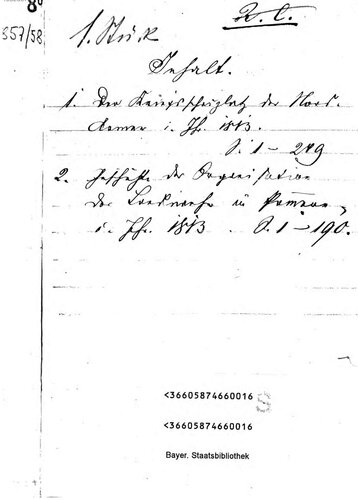 8°
R. C.
557/58
1. Stück
Inhalt.
1. Der Kriegsschauplatz der Nord-
Armee i. J. 1813.
S. 1 – 289
2. Geschichte der Organisation
der Landwehr in Pommern
i. J. 1813. S. 1 – 190.
<36605874660016
<36605874660016
Bayer. Staatsbibliothek